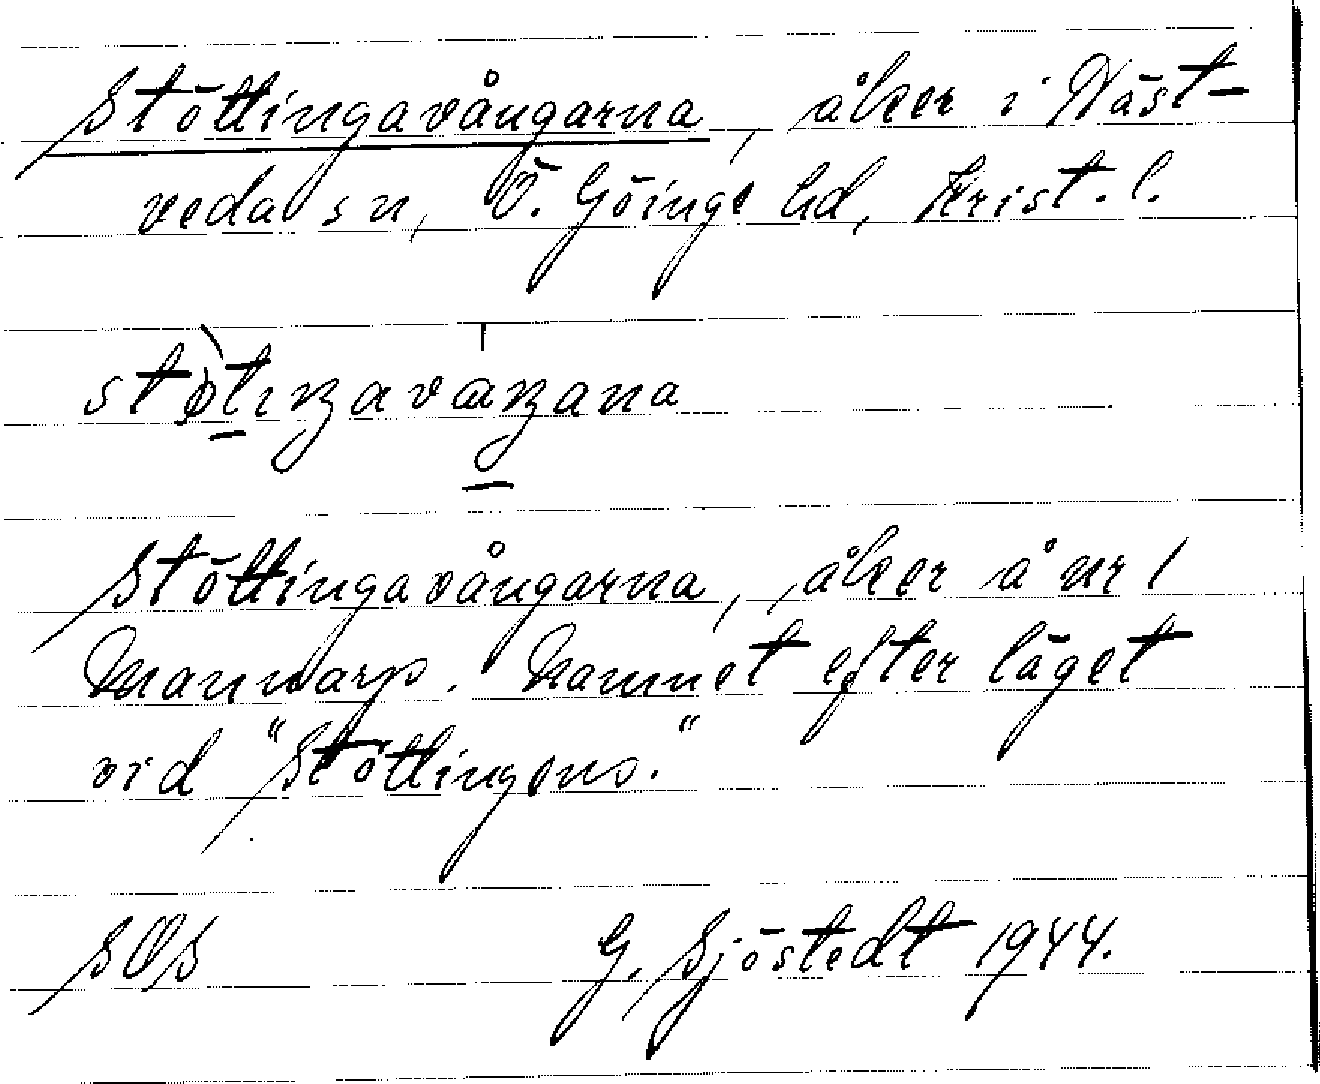 Stöttingavångarna, åker i Näst-
veda sn, Ö. Göinge hd, Krist. l.
Stöttingavångarna, åker å nr 1
Mannarp. Namnet efter läget
vid "Stöttingens."
SOS G. Sjöstedt 1944.